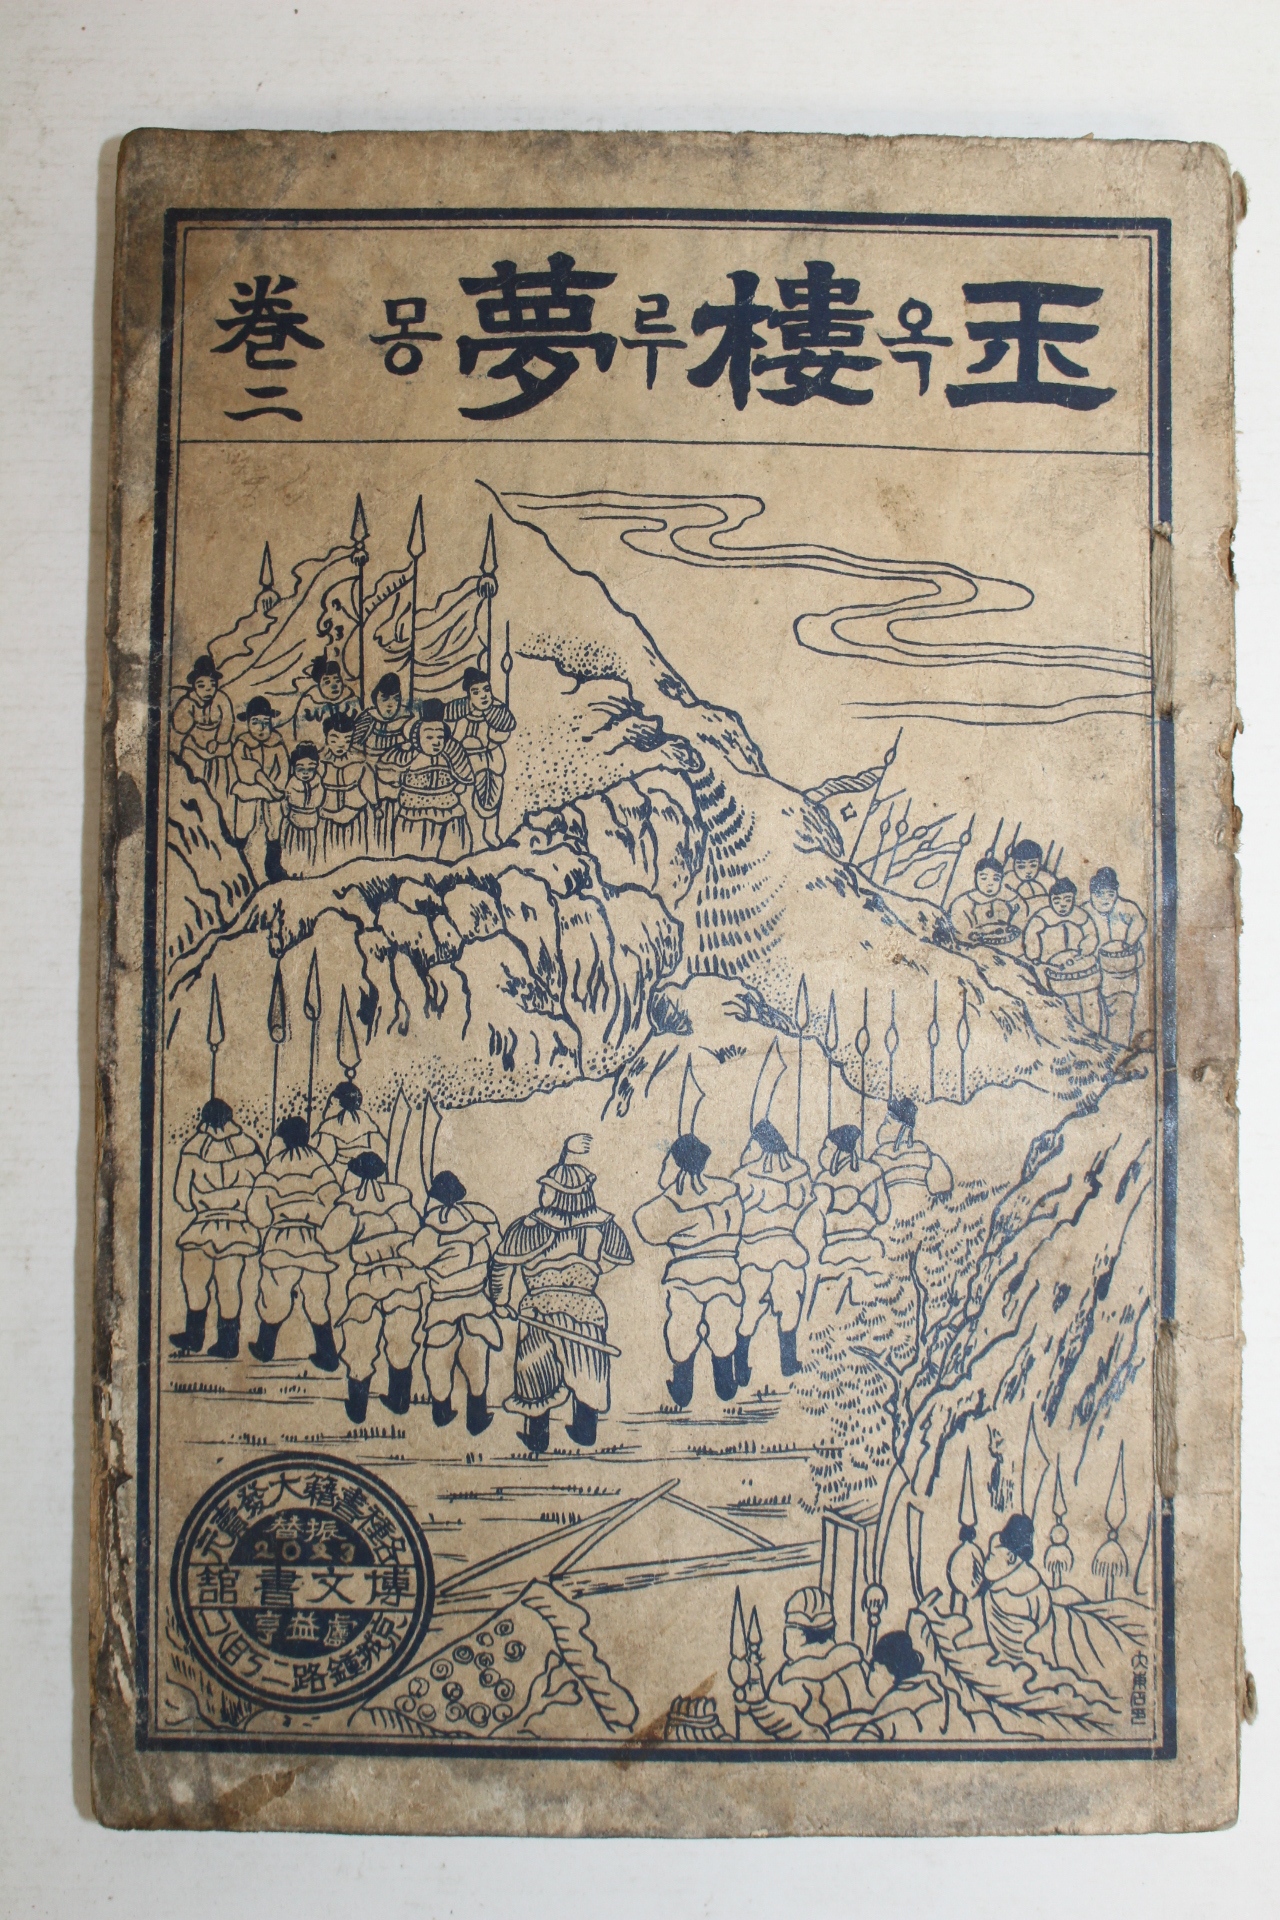 玉옥樓루夢몽 卷二
各種書籍大發賣元
振替
2023
博文書館
盧益亨
京城鍾路二丁目八二